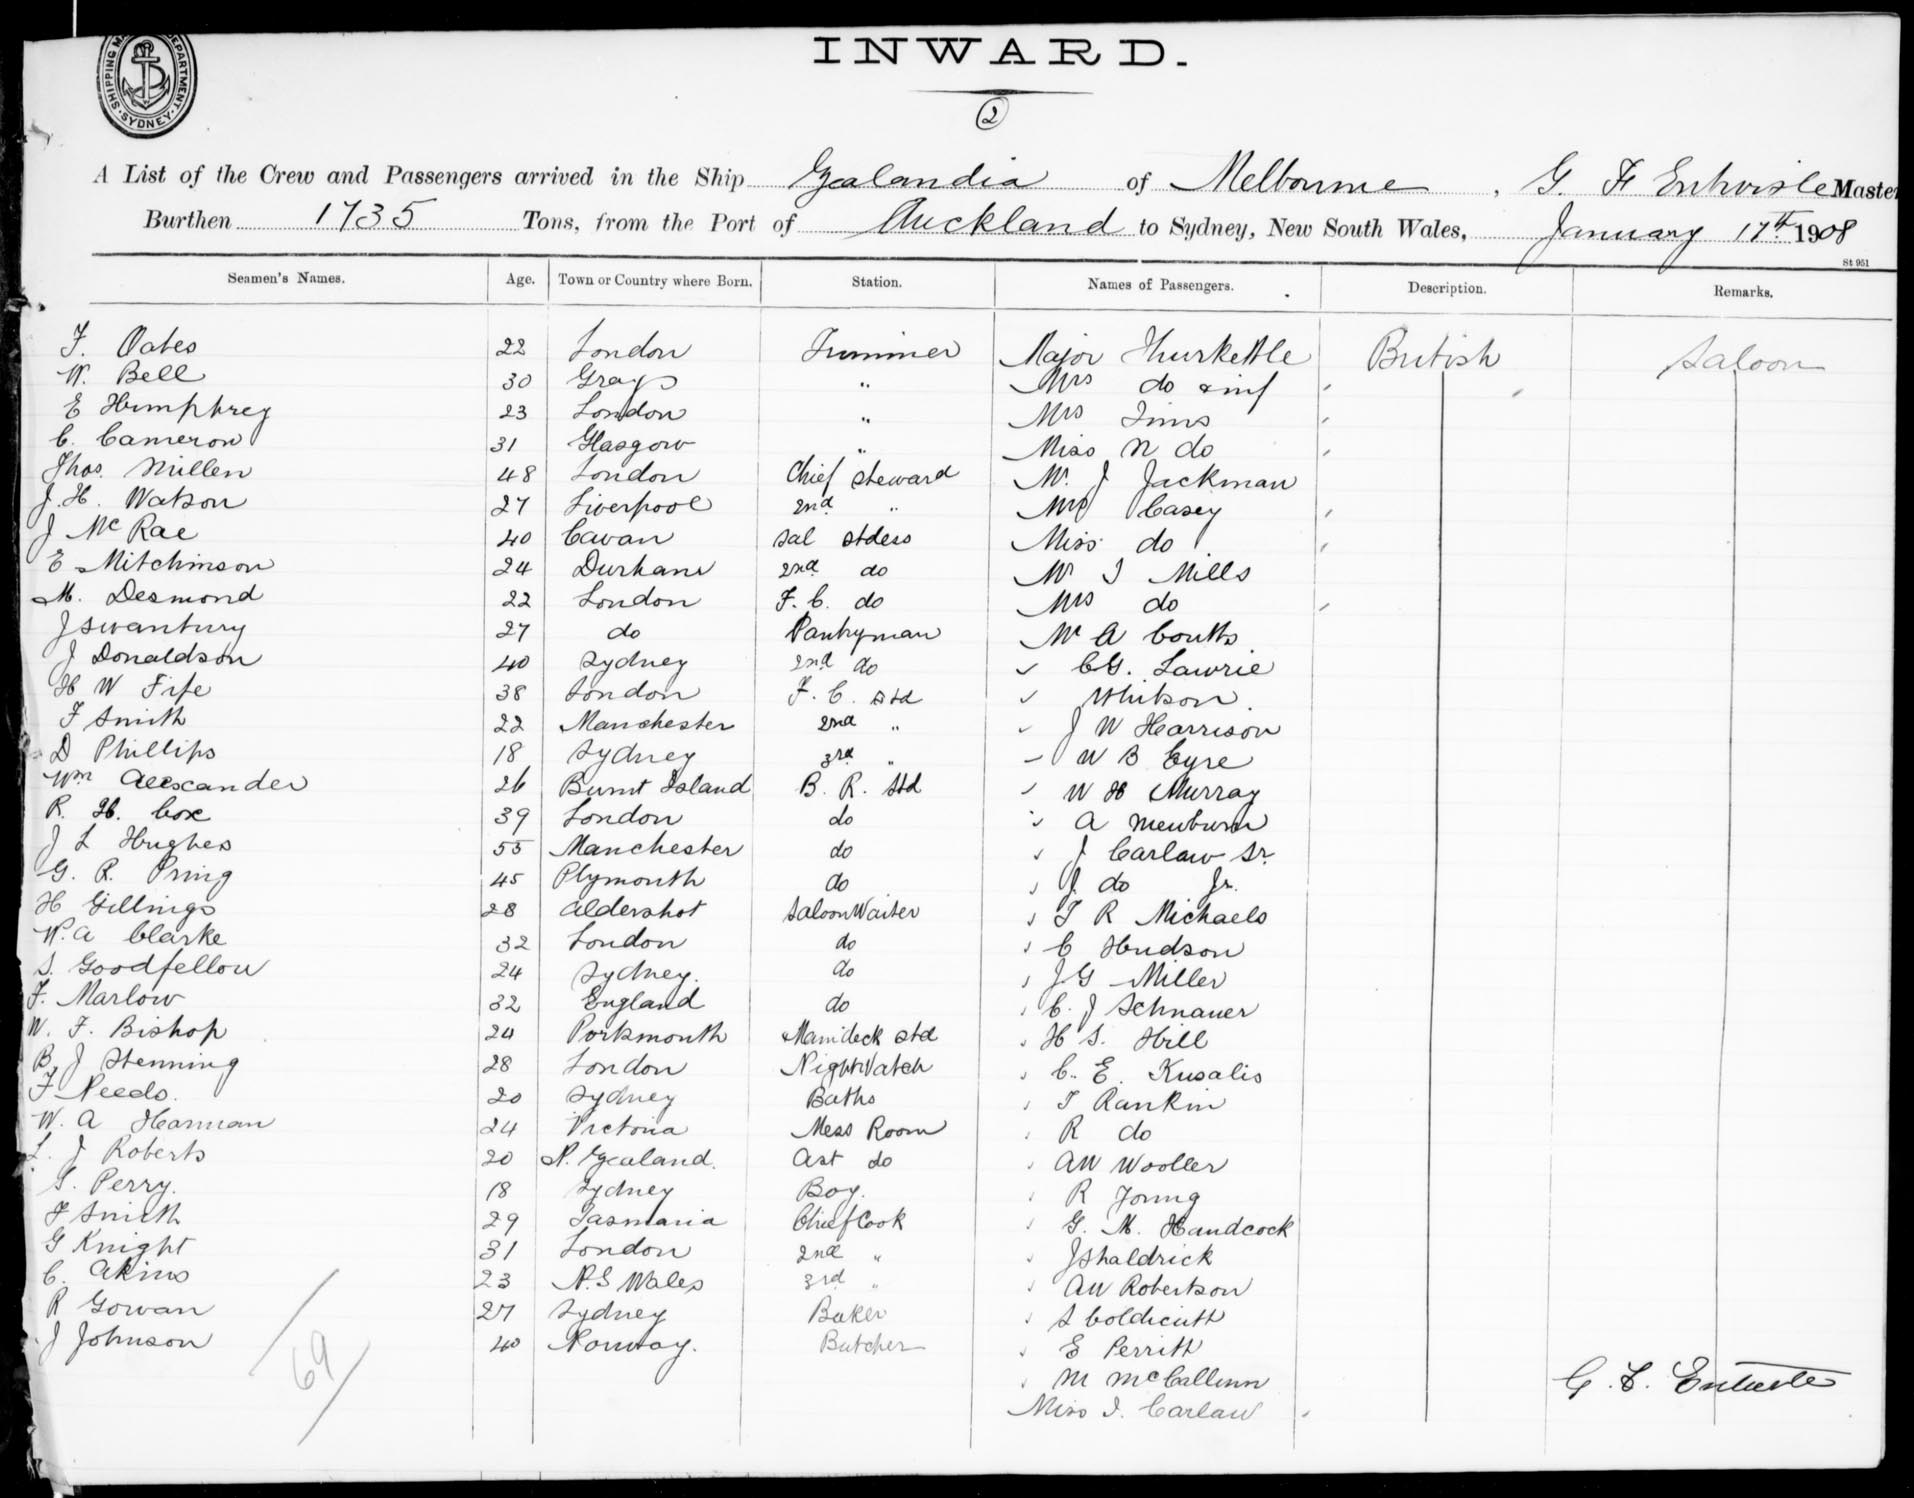 INWARD.
SHIPPING MA DEPARTMENT. SYDNEY
2
A List of the Crew and Passengers arrived in the Ship Zealandia of Melbourne, G. F Entwisle Master
Burthen 1735 Tons, from the Port of Auckland to Sydney, New South Wales, January 17th 1908
St 951
Seamen's Names. Age. Town or Country where Born. Station. Names of Passengers. Description. Remarks.
F. Oates 22 London Trimmer Major Thurkettle British Saloon
W. Bell 30 Grays " Mrs do & inf
E Humphrey 23 London " Mrs Tims
C. Cameron 31 Glasgow " Miss N do
Thos. Millen 48 London Chief Steward Mr. J Jackman
J. H. Watson 27 Liverpool 2nd " Mrs Casey
J McRae 40 Cavan Sal Stdess Miss do
E Mitchinson 24 Durham 2nd do Mr J Mills
M. Desmond 22 London F. C. do Mrs do
J Swanbury 27 do Pantryman Mr A Coutts
J Donaldson 40 Sydney 2nd do C G. Lawrie
H W Fife 38 London F. C. Std Whitson
F Smith 22 Manchester 2nd " J W Harrison
D Phillips 18 Sydney 3rd " W B Eyre
Wm Alexander 26 Burnt Island B. R. Std W H Murray
R. H. Cox 39 London do A Menburn
J L Hughes 55 Manchester do J Carlaw Sr.
G. R. Pring 45 Plymouth do J. do Jr.
H Gillings 28 Aldershot Saloon Waiter T R Michaels
W. A Clarke 32 London do C Hudson
S. Goodfellow 24 Sydney. do J G Miller
F. Marlow 32 England do C. J Schnauer
W. F. Bishop 24 Portsmouth Maindeck Std H S. Hill
B. J Henning 28 London Night Watch C. E. Kusalis
F Needs. 20 Sydney Baths T Rankin
W. A Harman 24 Victoria Mess Room R do
L. J Roberts 20 N. Zealand. Ast do AW Wooller
S. Perry. 18 Sydney Boy. R Young
F Smith 29 Tasmania Chief Cook G. M. Handcock
G Knight 31 London 2nd " J Shaldrick
C. Akins 23 N. S Wales 3rd " AW Robertson
R Gowan 27 Sydney Baker S Coldicutt
J Johnson 40 Norway. Butcher E Perrith
69 M McCallum G. F. Entwisle
Miss I. Carlaw